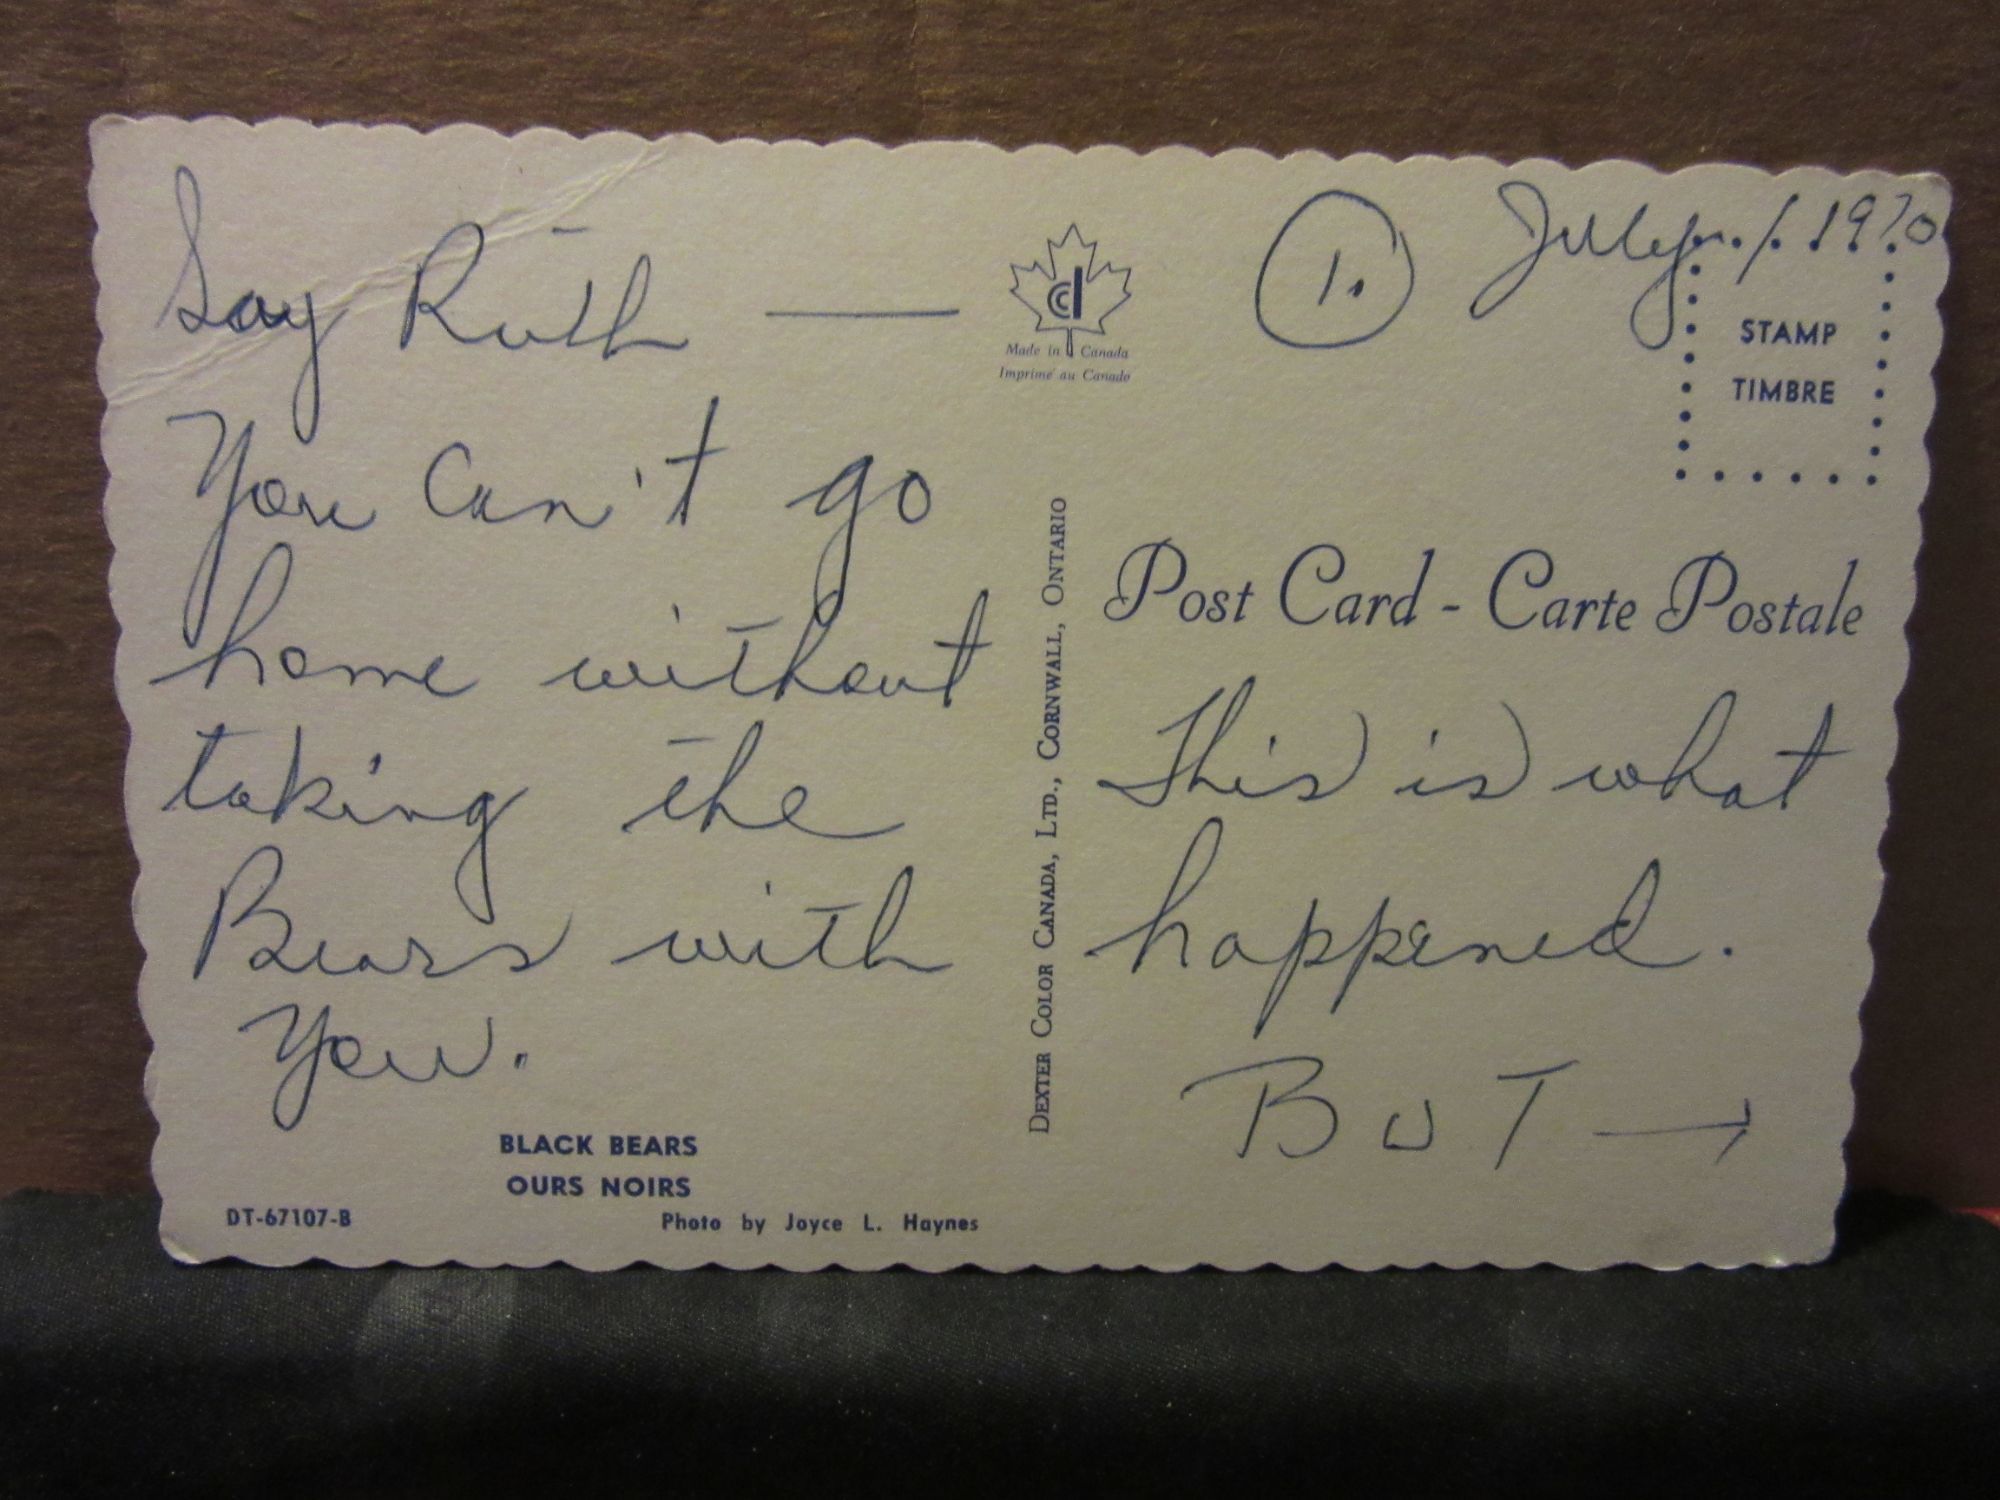 Say Ruth —
You can't go
home without
taking the
Bears with
You.
BLACK BEARS
OURS NOIRS
DT-67107-B
Photo by Joyce L. Haynes
cd
Made in Canada
Imprimé au Canada
DEXTER COLOR CANADA, LTD., CORNWALL, ONTARIO
1.
July 1 1970
STAMP
TIMBRE
Post Card - Carte Postale
This is what
happened.
BUT →